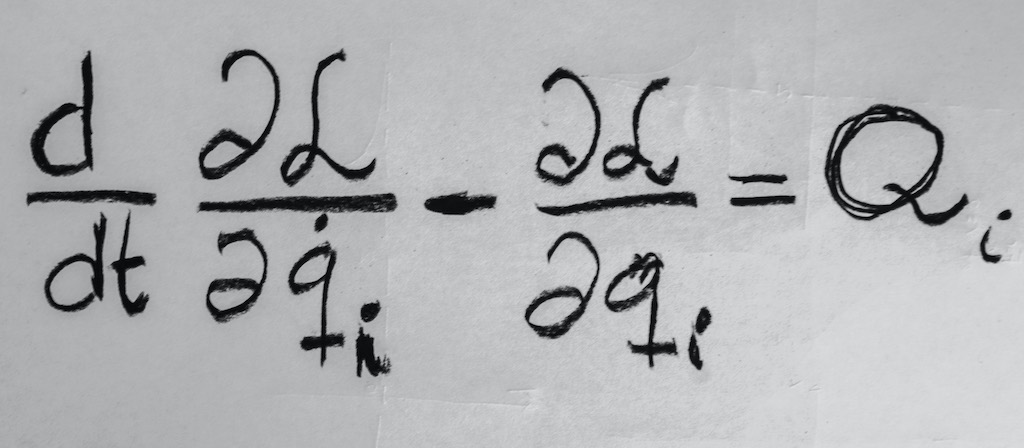 d/dt ∂ℒ/∂q̇ᵢ - ∂ℒ/∂qᵢ = Qᵢ